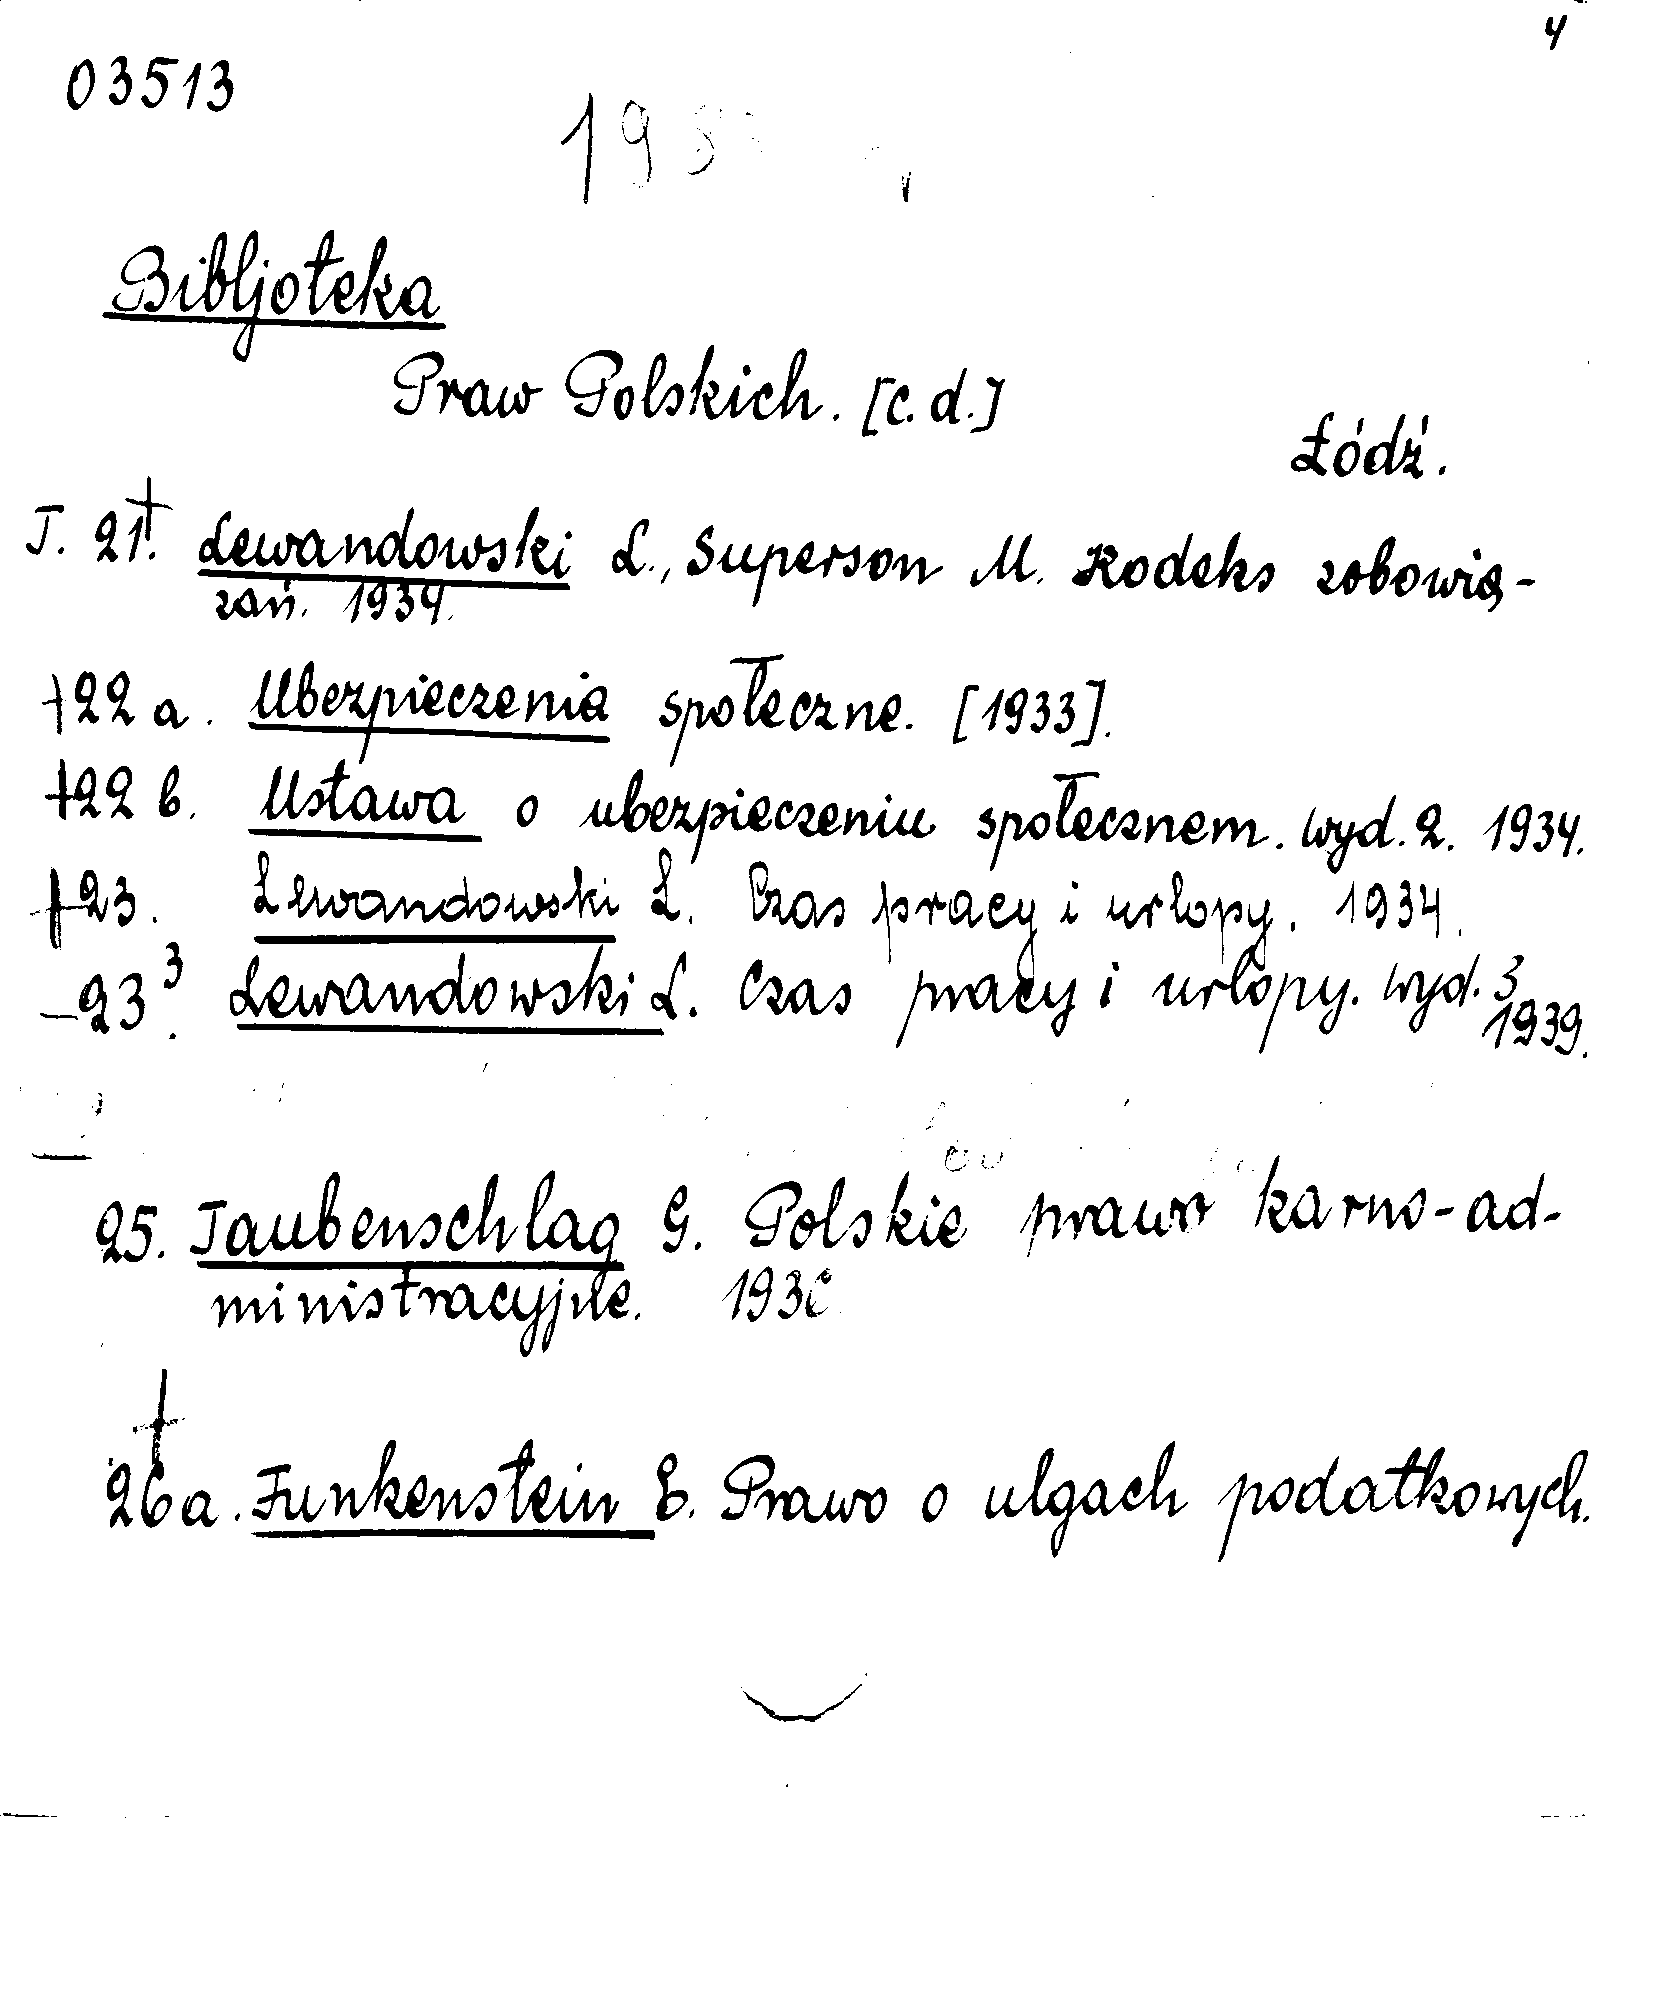 4
03513
Bibljoteka
Praw Polskich. [c.d.]
Łódź.
T. 21. Lewandowski L., Superson M. Kodeks zobowią-
zań. 1934.
+22 a. Ubezpieczenia społeczne. [1933].
+22 b. Ustawa o ubezpieczeniu społecznem. wyd. 2. 1934.
+23. Lewandowski L. Czas pracy i urlopy. 1934.
-23³. Lewandowski L. Czas pracy i urlopy. wyd. 3
1939.
25. Taubenschlag G. Polskie prawo karno-ad-
ministracyjne.
26a. Funkenstein E. Prawo o ulgach podatkowych.